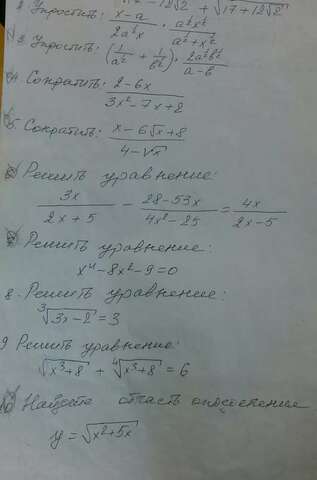 17-12√2 + √17+12√2
2 Упростить: (x-a)/(2a^½x) · (a^½x^½)/(a^½+x^½)
3 Упростить: (1/a^½ + 1/в^½) · (2a^½в^½)/(a-в)
4. Сократить: (2-6x)/(3x²-7x+2)
5. Сократить: (x-6√x+8)/(4-√x)
Решить уравнение:
3x/(2x+5) - (28-53x)/(4x²-25) = 4x/(2x-5)
Решить уравнение:
x⁴-8x²-9=0
8. Решить уравнение:
∛(3x-2)=3
9 Решить уравнение:
√(x³+8) + ∜(x³+8) = 6
10 Найдите область
y=√(x²+5x)